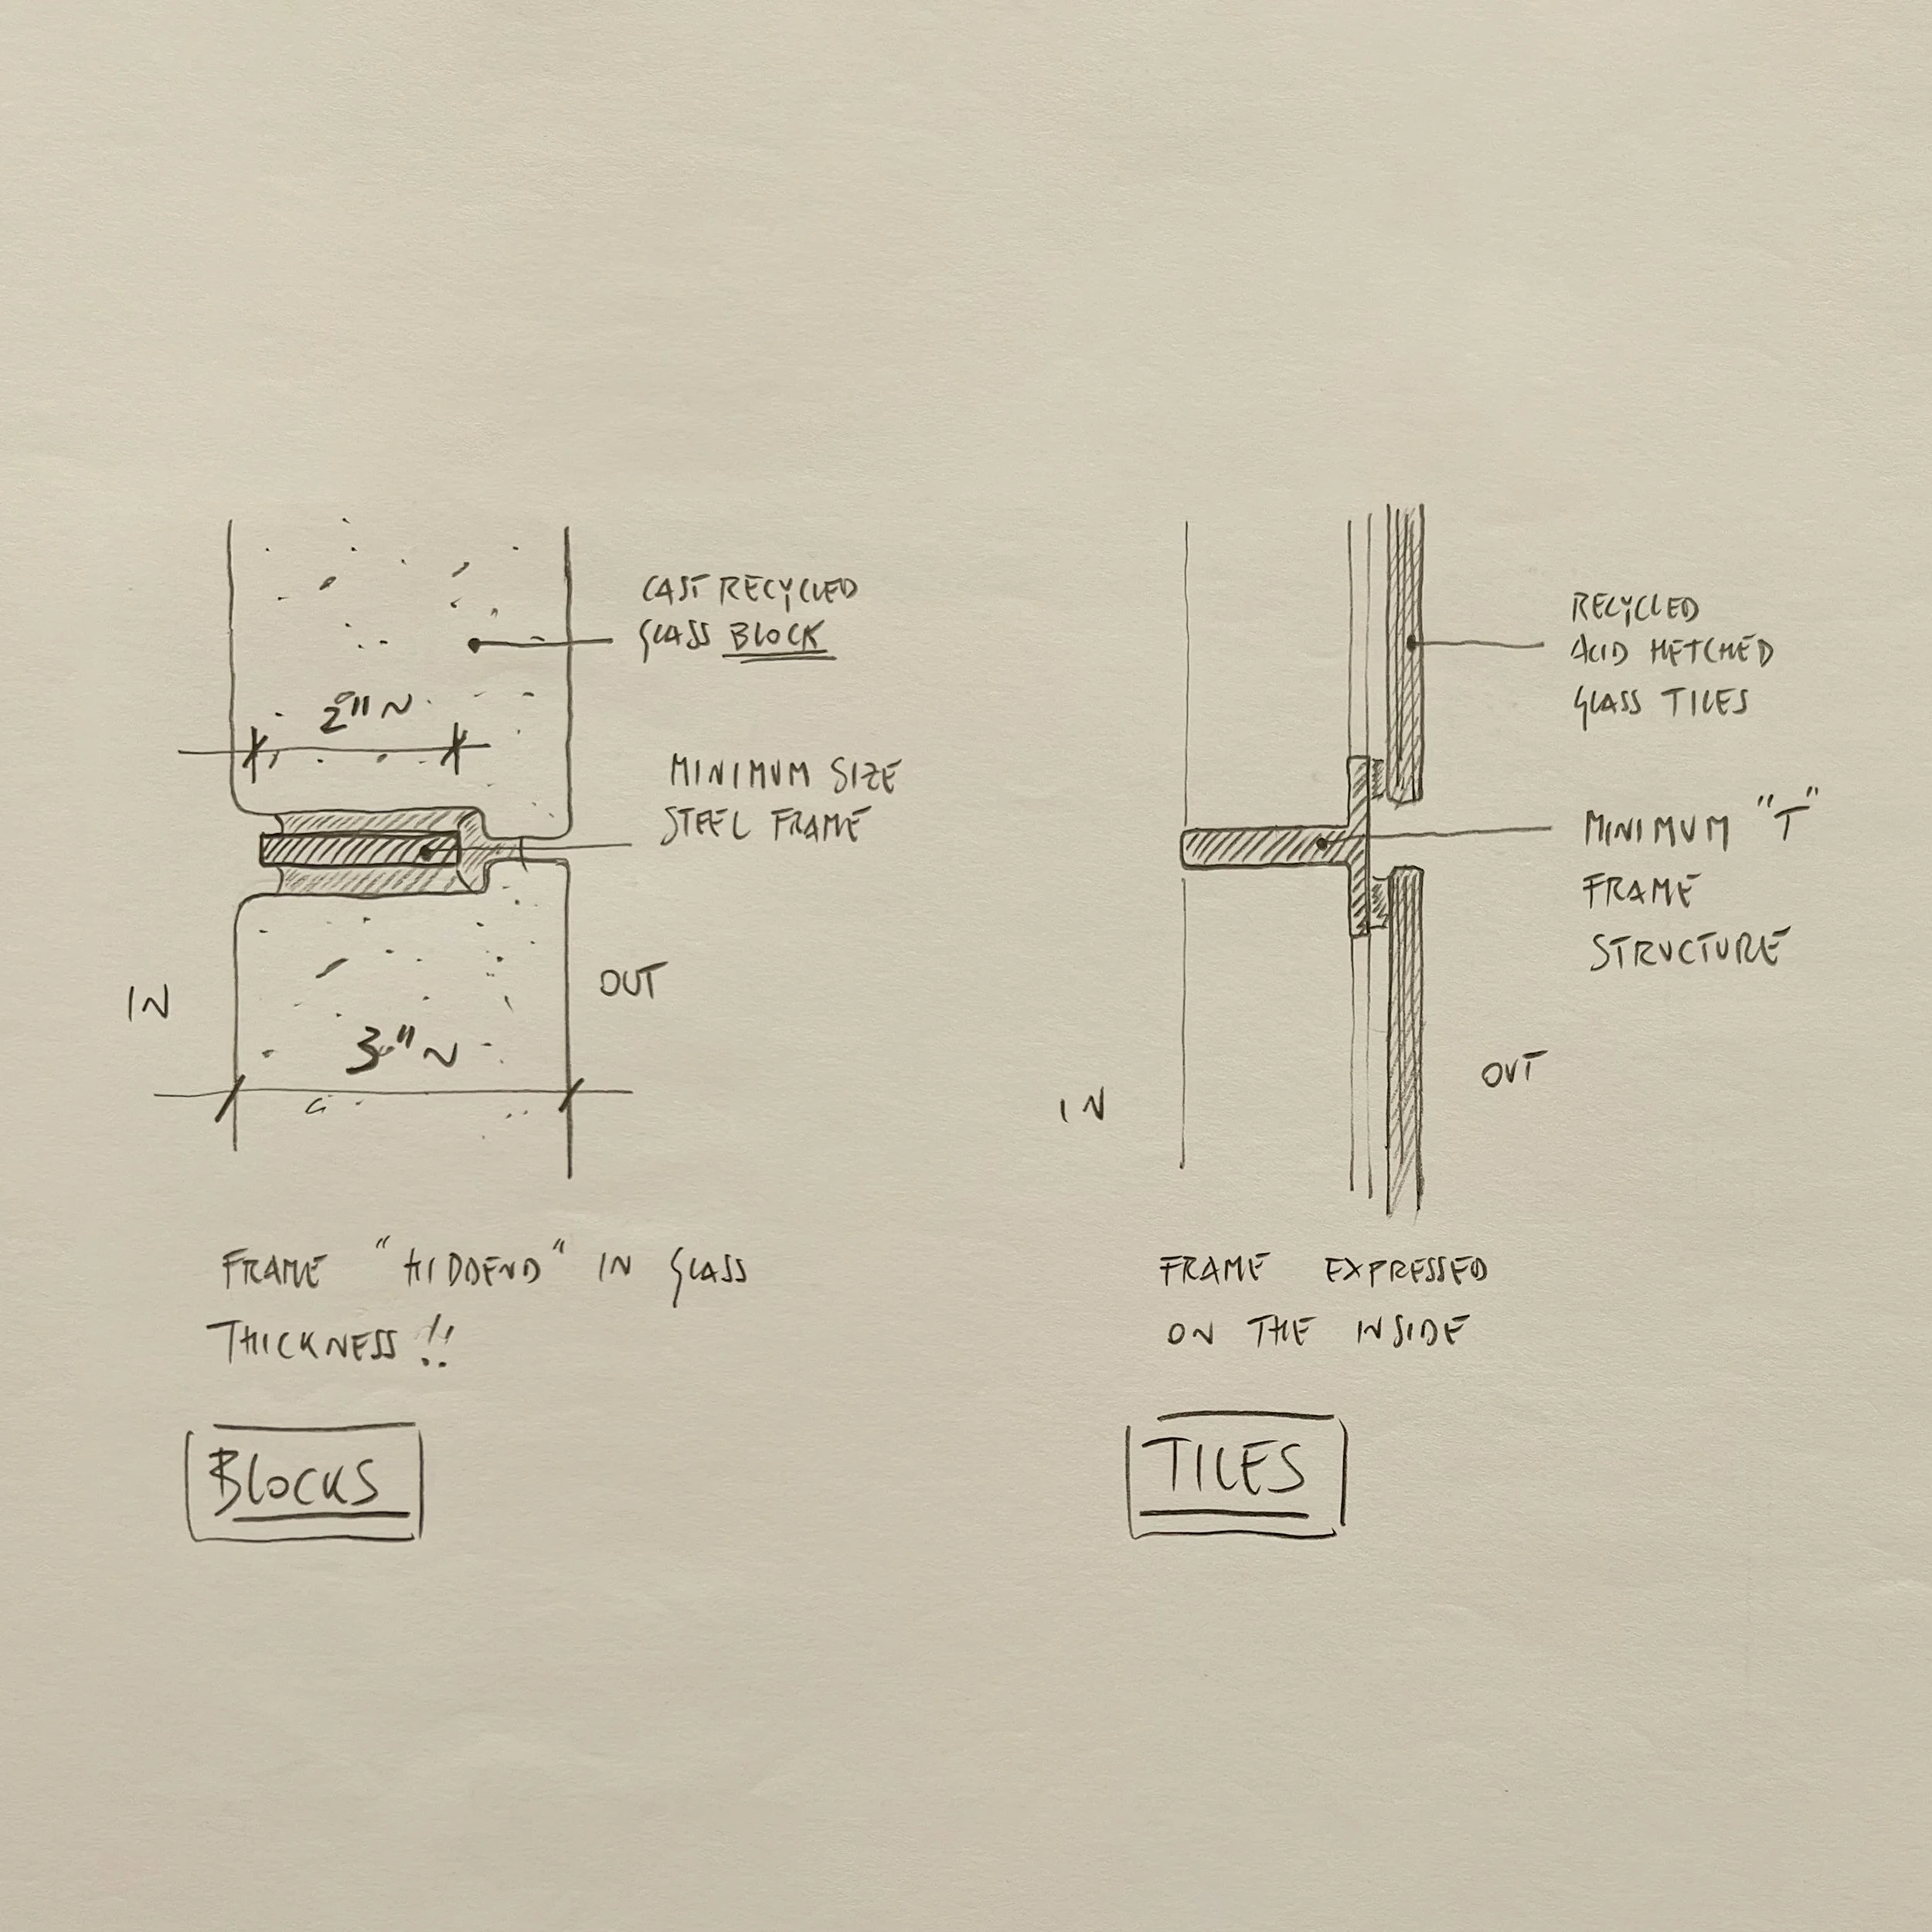 CAST RECYCLED
GLASS BLOCK
2" ~
MINIMUM SIZE
STEEL FRAME
IN
OUT
3" ~
FRAME "HIDDEND" IN GLASS
THICKNESS!!
BLOCKS
RECYCLED
ACID HETCHED
GLASS TILES
MINIMUM "T"
FRAME
STRUCTURE
OUT
IN
FRAME EXPRESSED
ON THE INSIDE
TILES